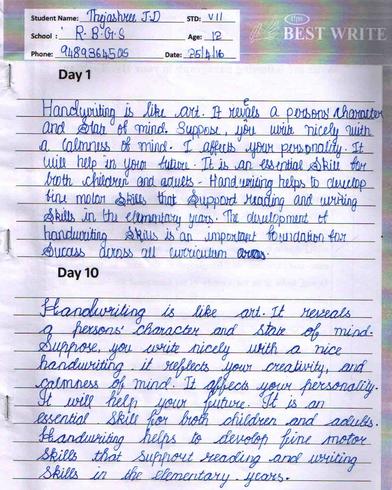 Student Name: Thejashree J.D STD: VII
School : R.B.G.S Age: 12
Phone: 9489364505 Date: 25/4/16
BEST WRITE
Day 1
Handwriting is like art. It reveals a persons character
and state of mind. Suppose, you write nicely with
a calmness of mind. I affects your personality. It
will help in your future. It is an essential skill for
both children and adults. Handwriting helps to develop
fine motor skills that support reading and writing
skills in the elementary years. The development of
handwriting skills is an important foundation for
Success across all curriculum areas.
Day 10
Handwriting is like art. It reveals
a persons' character and state of mind.
Suppose, you write nicely with a nice
handwriting. it reflects your creativity, and
calmness of mind. It affects your personality.
It will help your future. It is an
essential skill for both children and adults.
Handwriting helps to devolop fine motor
skills that support reading and writing
skills in the elementary years.